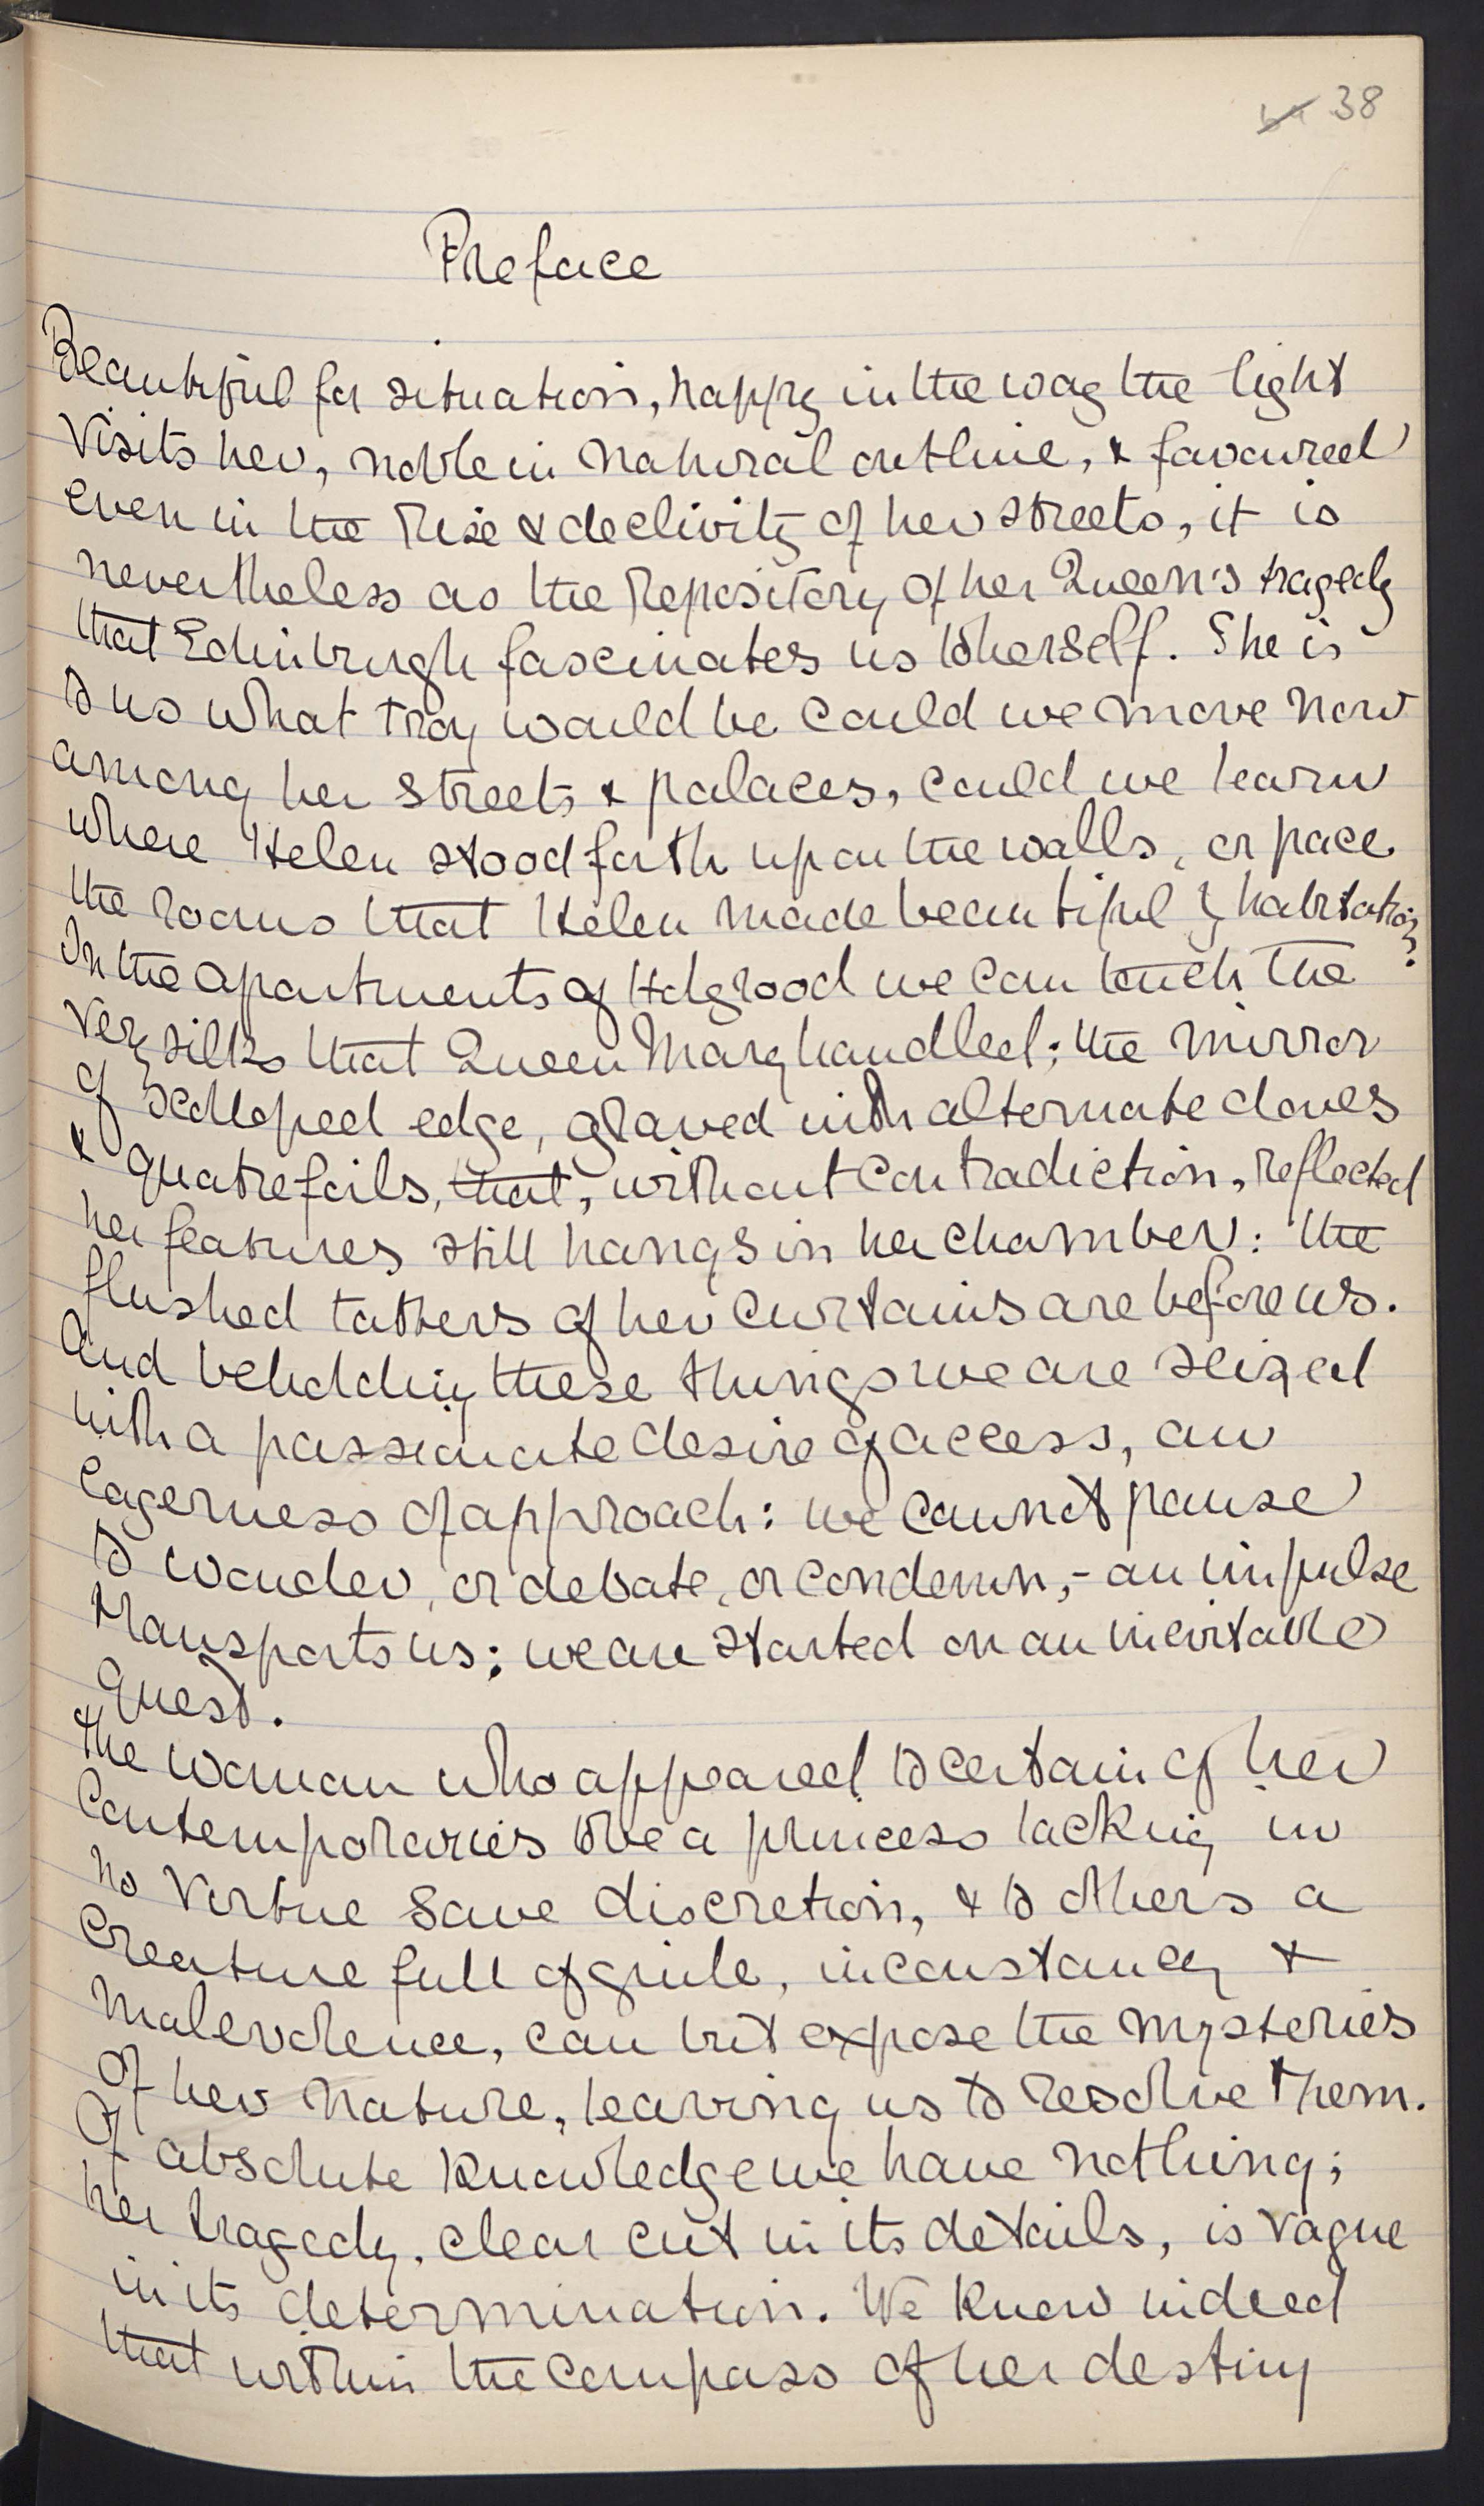 38
Preface
Beautiful for situation, happy in the way the light
visits her, noble in natural outline, & favoured
even in the rise & declivity of her streets, it is
nevertheless as the repository of her Queen's tragedy
that Edinburgh fascinates us to herself. She is
to us what Troy would be could we move now
among her streets & palaces, could we learn
where Helen stood forth upon the walls, or pace
the rooms that Helen made beautiful by habitation?
In the apartments of Holyrood we can touch the
very silks that Queen Mary handled; the mirror
of scolloped edge, graved with alternate doves
& quatrefoils, that, without contradiction, reflected
her features still hangs in her chamber: the
flushed tatters of her curtains are before us.
And beholding these things we are seized
with a passionate desire of access, an
eagerness of approach: we cannot pause
to wonder, or debate, or condemn,- an impulse
transports us: we are started on an inevitable
quest.
The woman who appeared to certain of her
contemporaries to be a princess lacking in
no virtue save discretion, & to others a
creature full of guile, inconstancy &
malevolence, can but expose the mysteries
of her nature, leaving us to resolve them.
Of absolute knowledge we have nothing;
her tragedy, clear cut in its details, is vague
in its determination. We know indeed
that within the compass of her destiny